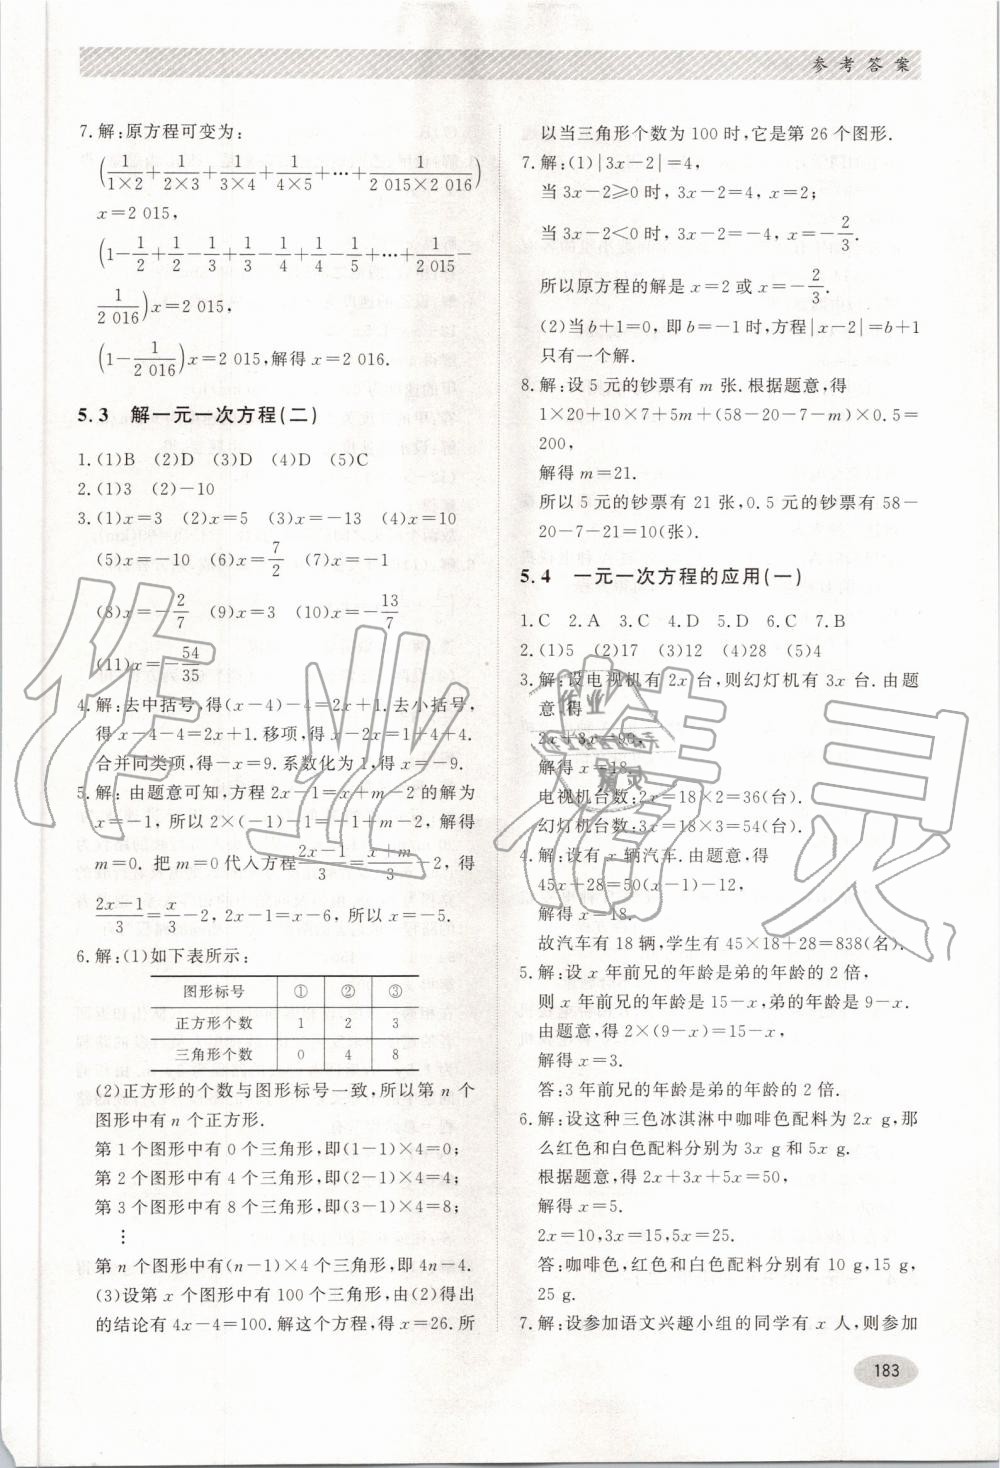 参考答案
7.解:原方程可变为:
(1/1×2+1/2×3+1/3×4+1/4×5+…+1/2 015×2 016)
x=2 015,
(1-1/2+1/2-1/3+1/3-1/4+1/4-1/5+…+1/2 015-
1/2 016)x=2 015,
(1-1/2 016)x=2 015,解得 x=2 016.
5.3 解一元一次方程(二)
1.(1)B (2)D (3)D (4)D (5)C
2.(1)3 (2)-10
3.(1)x=3 (2)x=5 (3)x=-13 (4)x=10
(5)x=-10 (6)x=7/2 (7)x=-1
(8)x=-2/7 (9)x=3 (10)x=-13/7
(11)x=-54/35
4.解:去中括号,得(x-4)-4=2x+1.去小括号,
得 x-4-4=2x+1.移项,得 x-2x=1+4+4.
合并同类项,得-x=9.系数化为1,得x=-9.
5.解:由题意可知,方程 2x-1=x+m-2的解为
x=-1,所以 2×(-1)-1=-1+m-2,解得
m=0. 把 m=0代入方程2x-1/3=x+m/3-2,得
2x-1/3=x/3-2,2x-1=x-6,所以 x=-5.
6.解:(1)如下表所示:
图形标号 ① ② ③
正方形个数 1 2 3
三角形个数 0 4 8
(2)正方形的个数与图形标号一致,所以第 n 个
图形中有 n 个正方形.
第 1 个图形中有 0 个三角形,即(1-1)×4=0;
第 2 个图形中有 4 个三角形,即(2-1)×4=4;
第 3 个图形中有 8 个三角形,即(3-1)×4=8;
⋮
第 n 个图形中有(n-1)×4个三角形,即 4n-4.
(3)设第 x 个图形中有 100 个三角形,由(2)得出
的结论有 4x-4=100.解这个方程,得 x=26.所
以当三角形个数为 100 时,它是第 26 个图形.
7.解:(1)|3x-2|=4,
当 3x-2≥0 时,3x-2=4,x=2;
当 3x-2<0 时,3x-2=-4,x=-2/3.
所以原方程的解是 x=2 或 x=-2/3.
(2)当 b+1=0,即 b=-1 时,方程|x-2|=b+1
只有一个解.
8.解:设 5 元的钞票有 m 张.根据题意,得
1×20+10×7+5m+(58-20-7-m)×0.5=
200,
解得 m=21.
所以 5 元的钞票有 21 张,0.5 元的钞票有 58-
20-7-21=10(张).
5.4 一元一次方程的应用(一)
1.C 2.A 3.C 4.D 5.D 6.C 7.B
2.(1)5 (2)17 (3)12 (4)28 (5)4
3.解:设电视机有 2x 台,则幻灯机有 3x 台.由题
意,得
2x+3x=90,
解得 x=18.
电视机台数:2x=18×2=36(台).
幻灯机台数:3x=18×3=54(台).
4.解:设有 x 辆汽车.由题意,得
45x+28=50(x-1)-12,
解得 x=18.
故汽车有 18 辆,学生有 45×18+28=838(名).
5.解:设 x 年前兄的年龄是弟的年龄的 2 倍,
则 x 年前兄的年龄是 15-x,弟的年龄是 9-x.
由题意,得 2×(9-x)=15-x,
解得 x=3.
答:3 年前兄的年龄是弟的年龄的 2 倍.
6.解:设这种三色冰淇淋中咖啡色配料为 2x g,那
么红色和白色配料分别为 3x g 和 5x g.
根据题意,得 2x+3x+5x=50,
解得 x=5.
2x=10,3x=15,5x=25.
答:咖啡色,红色和白色配料分别有 10 g,15 g,
25 g.
7.解:设参加语文兴趣小组的同学有 x 人,则参加
183
作业精灵